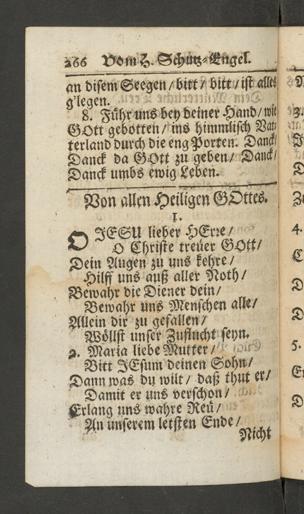 266 Vom H. Schutz-Engel.
an disem Seegen / bitt / bitt / ist alles
g'legen.
8. Führ uns bey deiner Hand / wie
GOtt gebotten / ins himmlisch Vat-
terland durch die eng Porten. Danck /
Danck da GOtt zu geben / Danck /
Danck umbs ewig Leben.
Von allen Heiligen GOttes.
1.
O JESU lieber HErre /
O Christe treuer GOtt /
Dein Augen zu uns kehre /
Hilff uns auß aller Noth /
Bewahr die Diener dein /
Bewahr uns Menschen alle /
Allein dir zu gefallen /
Wöllst unser Zuflucht seyn.
2. Maria liebe Mutter /
Bitt JEsum deinen Sohn /
Dann was du wilt / daß thut er /
Damit er uns verschon /
Erlang uns wahre Reü /
An unserem letsten Ende /
Nicht